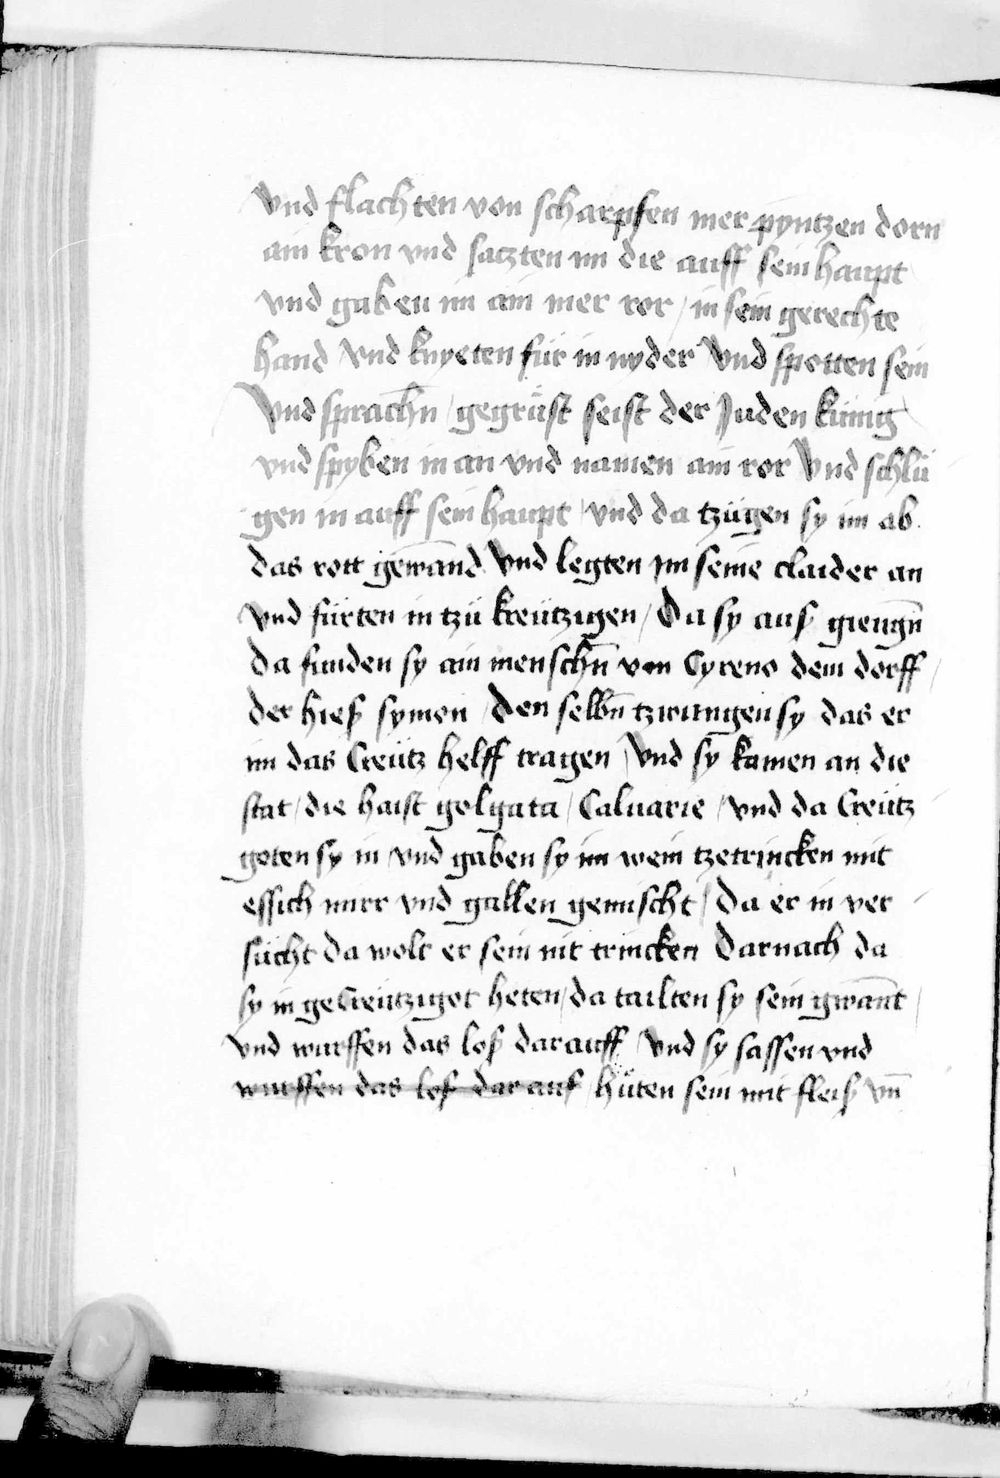 vnd flachten von scharpfen mer pyntzen dorn
ain kron vnd saczten im die auff sein haupt
vnd gaben im ain mer ror / in sein gerechte
hand vnd knyeten für in nyder Vnd spotten sein
Vnd sprachn̄ / gegrüst seist der Juden küng
vnd spyben in an vnd namen ain ror Vnd schlü
gen in auff sein haupt / vnd da tzügen sy im ab
das rott gewānd Vnd legten im seine claider an
vnd fürten in tzü kreützigen / Da sy auß giengn̄
da funden sy ain menschn̄ von Cyreno dem dorff /
der hieß symon / Den selbn̄ tzwungen sy das er
im das Creütz helff tragen / Vnd sy kamen an die
stat / die haist golgata / Caluarie / vnd da Creütz
goten sy in / vnd gaben sy im wein tzetrincken mit
essich mirr vnd gallen gemischt / Da er in ver
sücht da wolt er sein nit trincken Darnach da
sy in geCreütziget heten / da tailten sy sein gwānt /
vnd wurffen das loß darauff / Vnd sy sassen vnd
wurffen das loß darauf / hüten sein mit fleiß vn̄